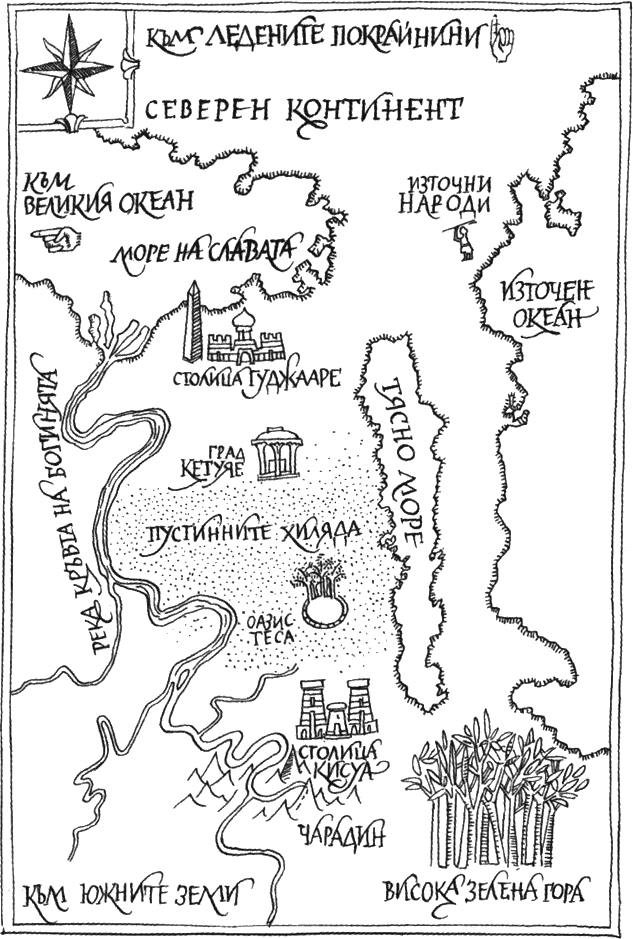 КЪМ ЛЕДЕНИТЕ ПОКРАЙНИНИ
СЕВЕРЕН КОНТИНЕНТ
КЪМ
ВЕЛИКИЯ ОКЕАН
ИЗТОЧНИ
НАРОДИ
МОРЕ НА СЛАВАТА
ИЗТОЧЕН
ОКЕАН
СТОЛИЦА ГУДЖААРЕ
ТЯСНО МОРЕ
РЕКА КРЪВТА НА БОГИНЯТА
ГРАД
КЕТУЯЕ
ПУСТИННИТЕ ХИЛЯДА
ОАЗИС
ТЕСА
СТОЛИЦА
КИСУА
ЧАРАДИН
КЪМ ЮЖНИТЕ ЗЕМИ
ВИСОКА ЗЕЛЕНА ГОРА